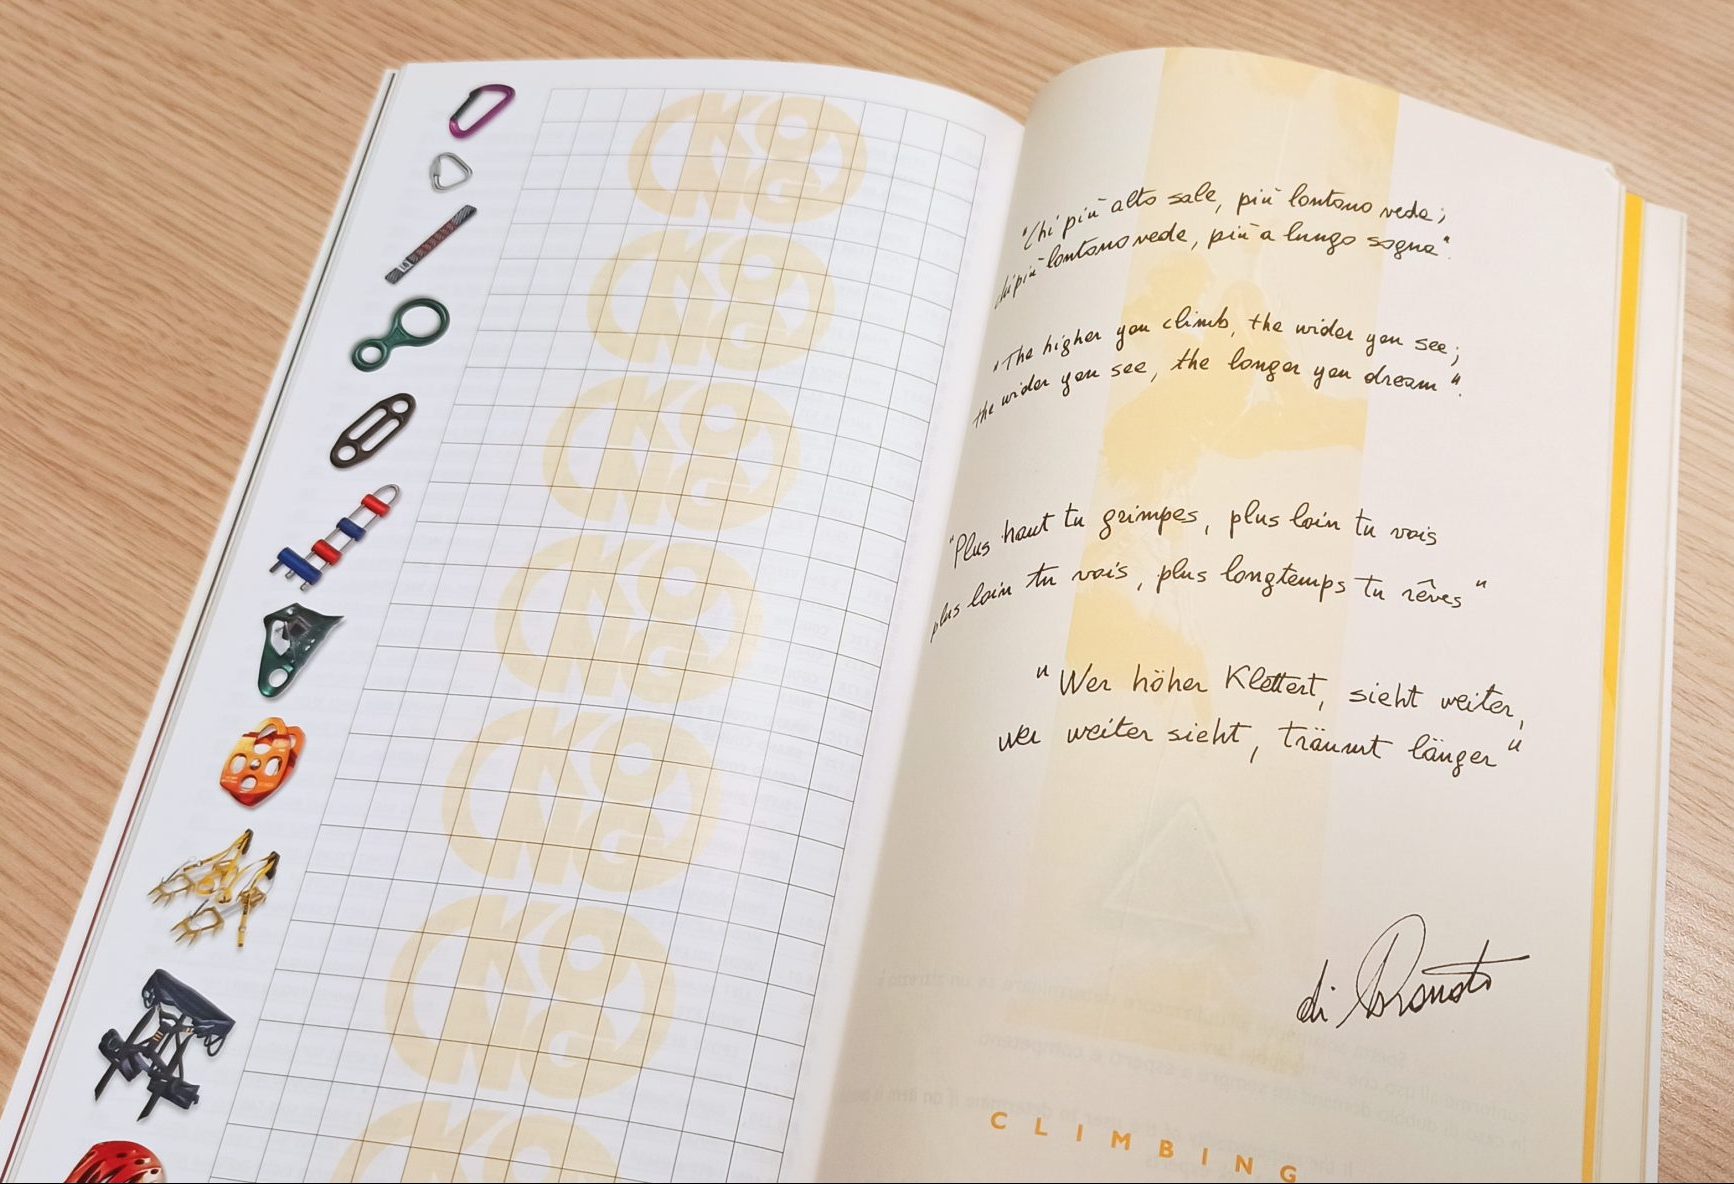 KO
NG
KO
NG
KO
NG
KO
NG
KO
NG
KO
NG
KO
"Chi più alto sale, più lontano vede;
chi più lontano vede, più a lungo sogna".
"The higher you climb, the wider you see;
the wider you see, the longer you dream".
"Plus haut tu grimpes, plus loin tu vois
plus loin tu vois, plus longtemps tu rêves"
"Wer höher Klettert, sieht weiter,
wer weiter sieht, träumt länger"
di
CLIMBING